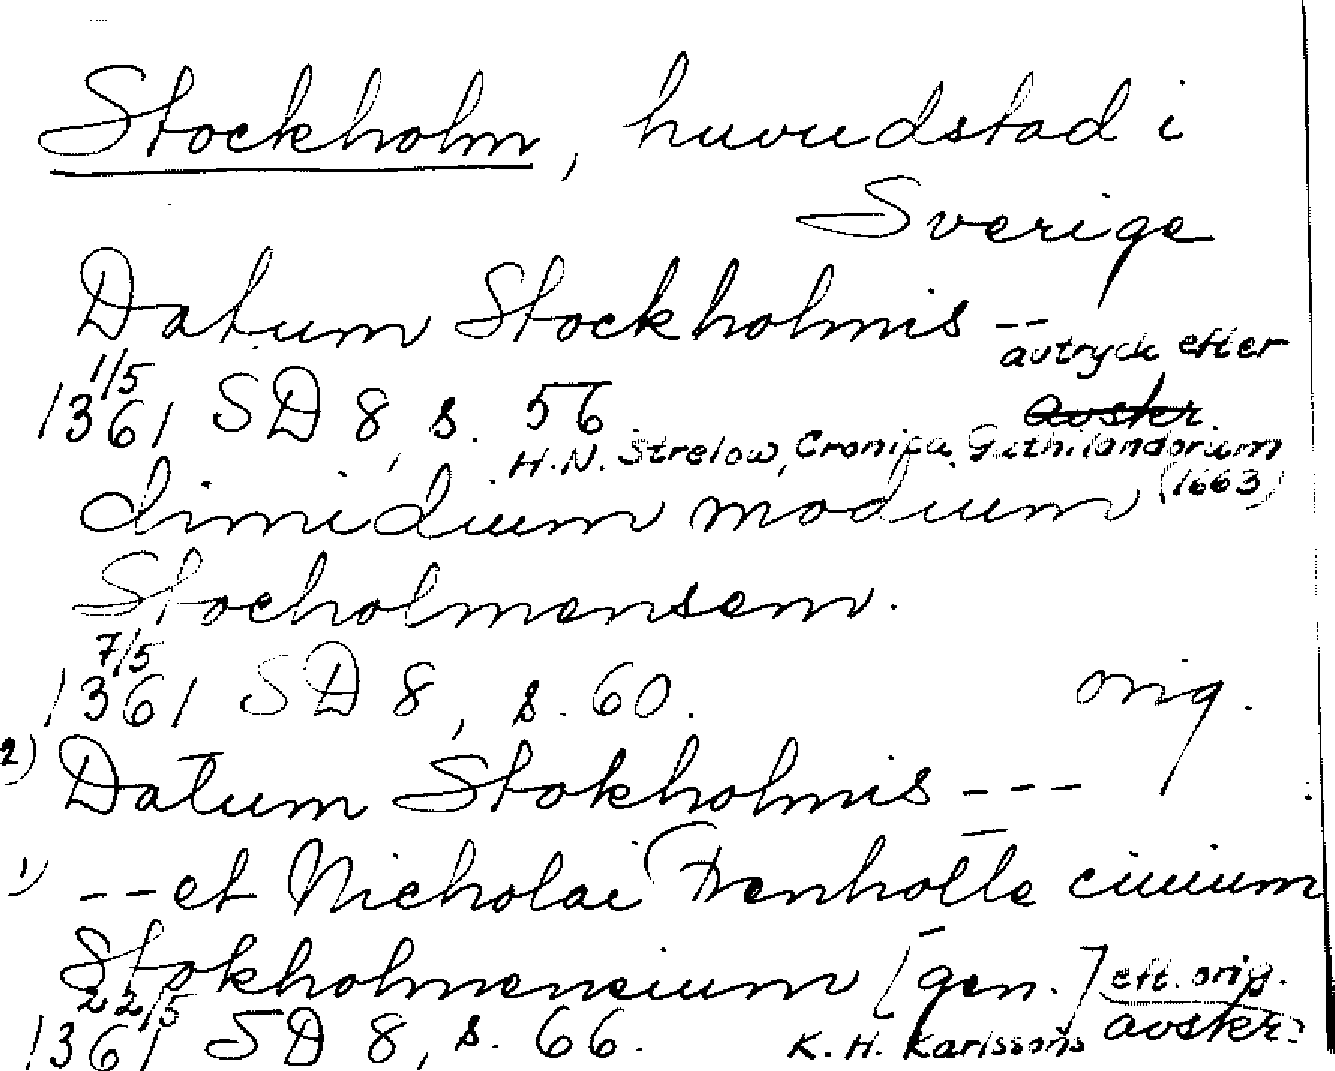 Stockholm, huvudstad i
Sverige
Datum Stockholmis --
avtryck efter
1/5
1361 SD 8, s. 56
H.N. Strelow, Cronica Guthilandorium
(1663)
dimidium modium
Stocholmensem.
7/5
1361 SD 8, s. 60. orig.
2) Datum Stokholmis ---
1) -- et Nicholai Frenholte ciuium
Stokholmencium [gen.] eft. orig.
22/5
1361 SD 8, s. 66. K. H. Karlssons avskr.